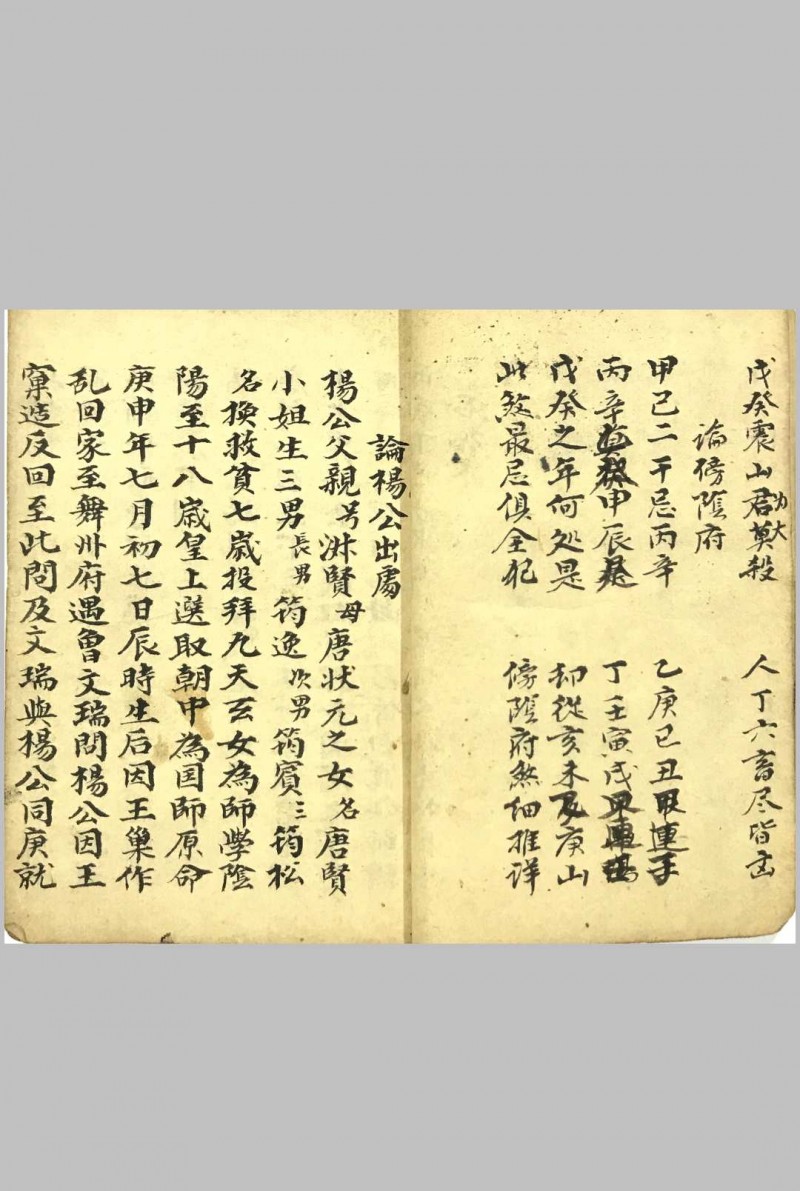 戊癸震山君莫殺 人丁六畜尽皆
力大
論傍陰府
甲己二干忌丙辛 乙庚巳丑
丙辛 申辰是 丁壬寅戌
戊癸之年何処是 却從亥未 庚山
此煞最忌俱全犯 傍陰府煞细推详
論楊公出處
楊公父親号淋賢母唐状元之女名唐賢
小姐生三男長男筠逸次男筠賓三筠松
名換救貧七歳投拜九天玄女為師學陰
陽至十八歳皇上選取朝中為国師原命
庚申年七月初七日辰時生后因王巢作
乱回家至舞州府遇曾文瑞問楊公因王
窠造反回至此問及文瑞與楊公同庚就